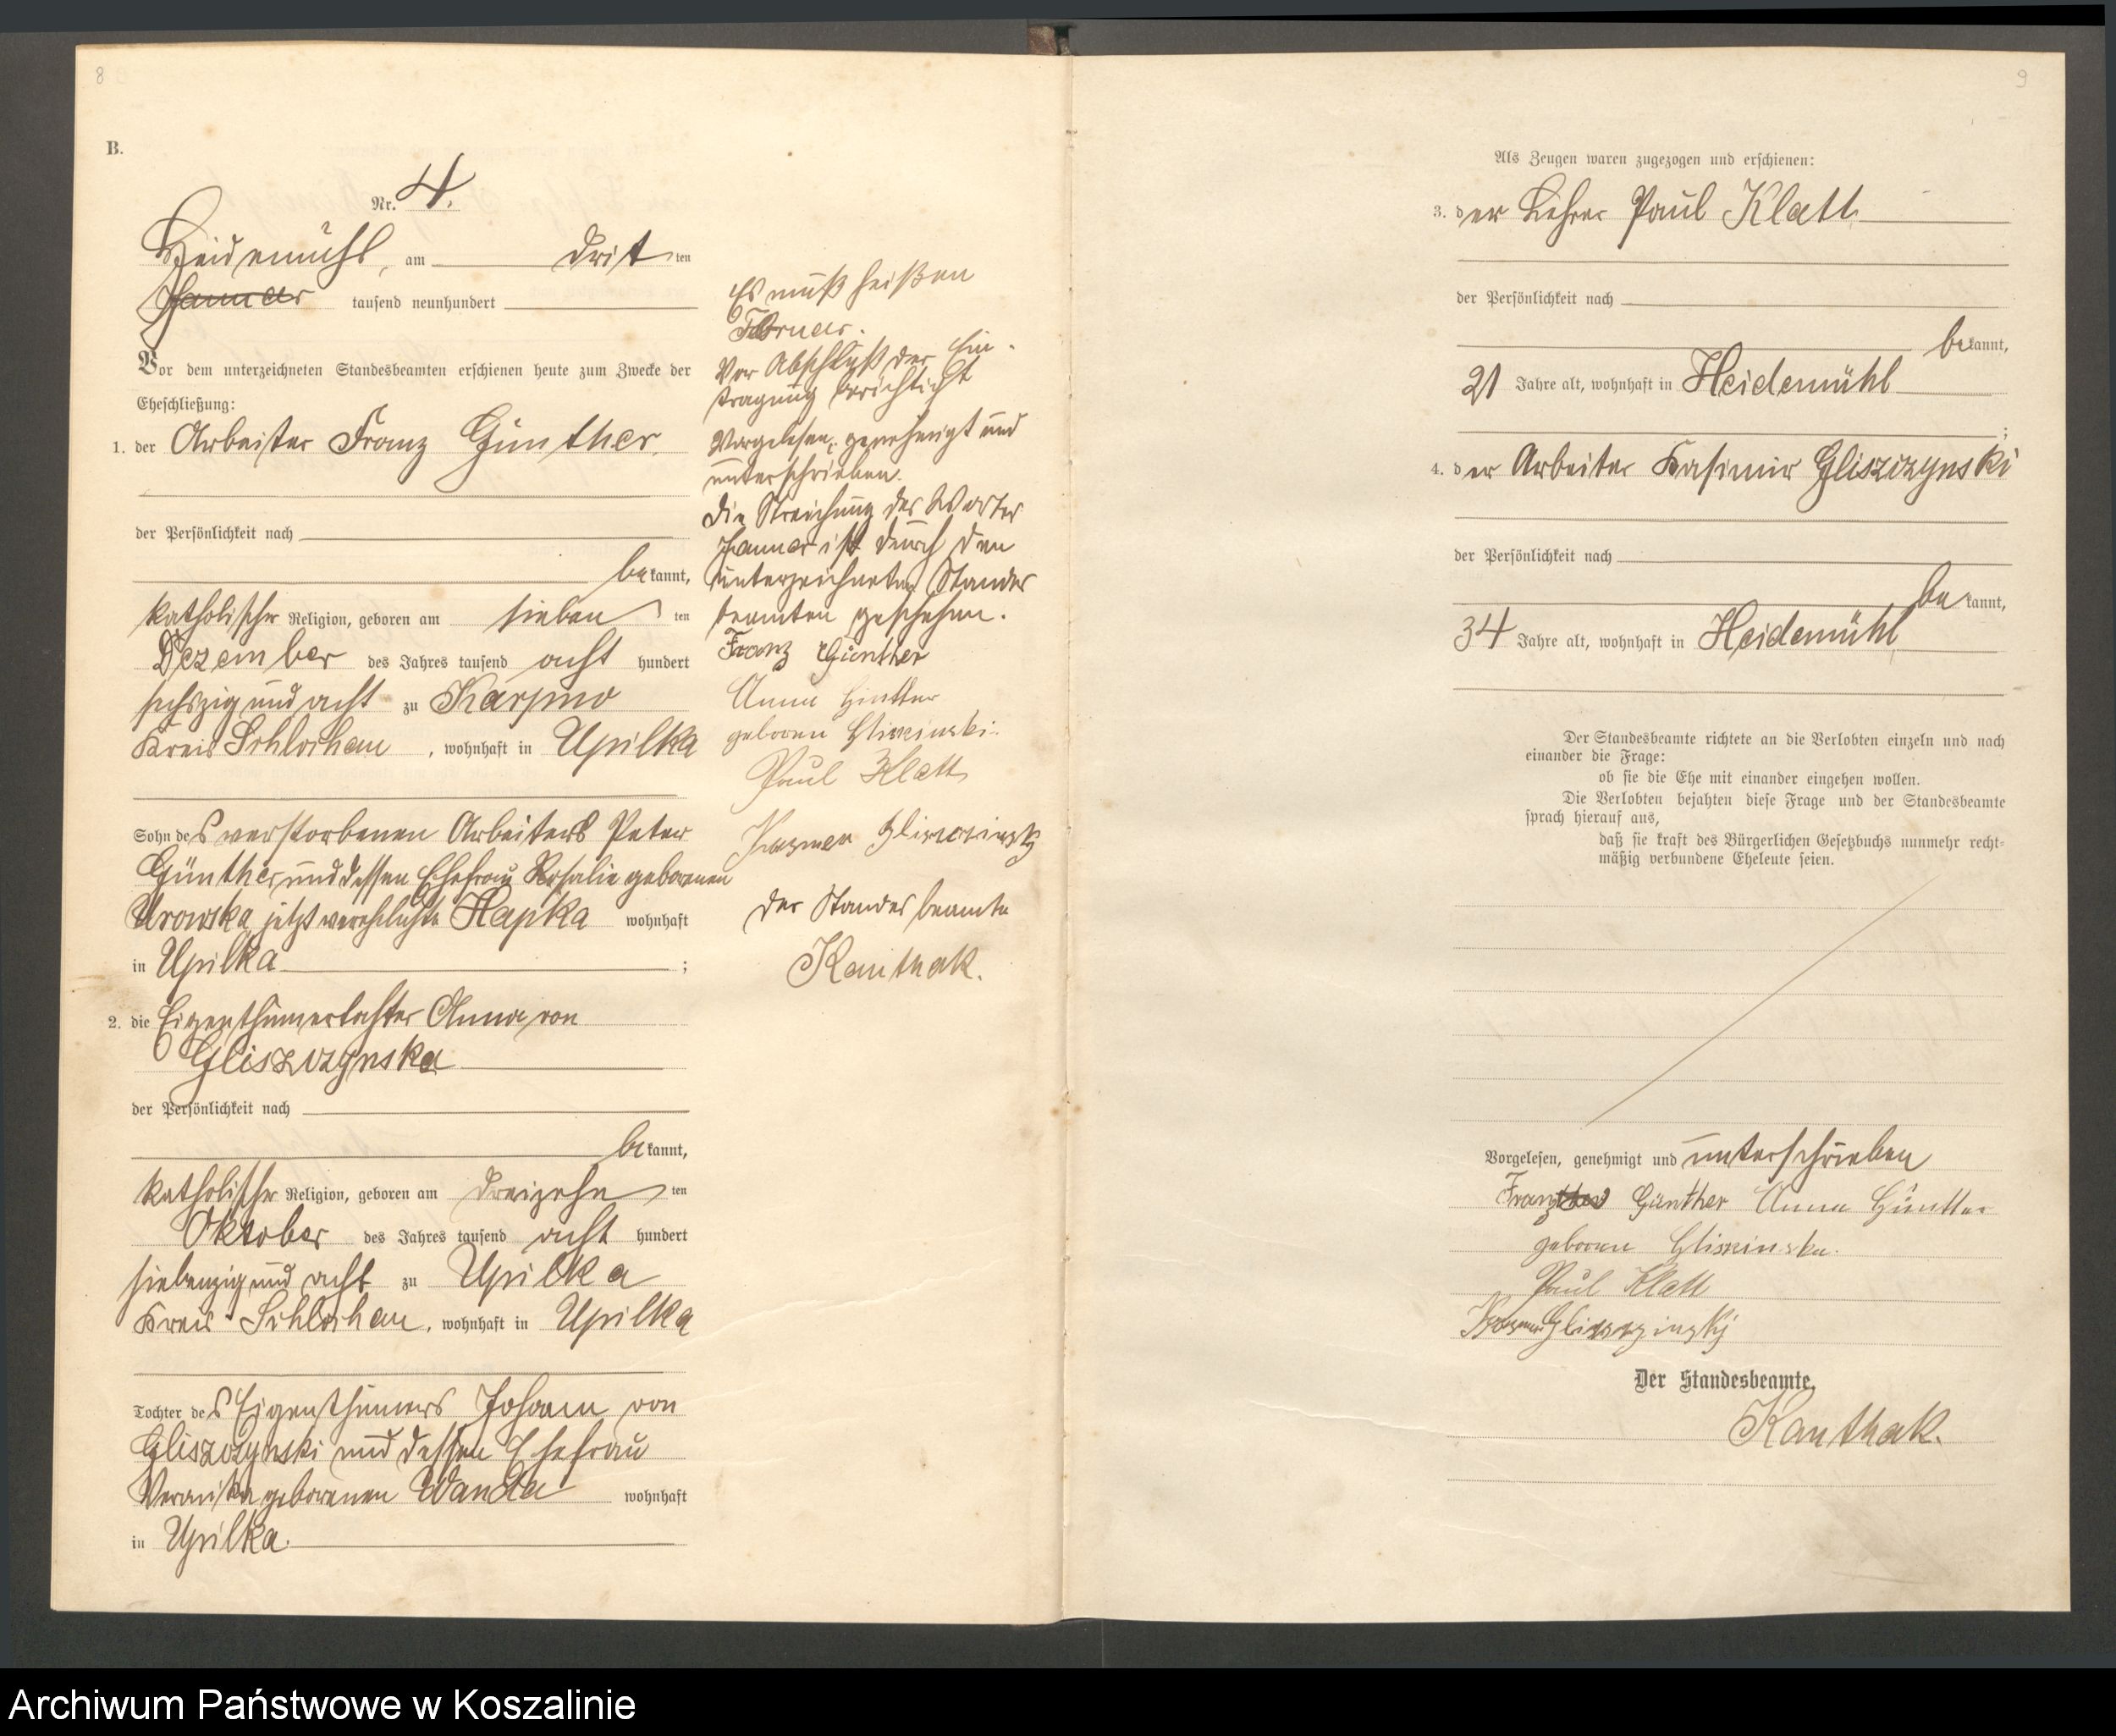 8
B.
Nr. 4.
Heidemühl, am dritten
Januar tausend neunhundert
Vor dem unterzeichneten Standesbeamten erschienen heute zum Zwecke der
Eheschließung:
1. der Arbeiter Franz Günther
der Persönlichkeit nach
bekannt,
katholischer Religion, geboren am siebenten
Dezember des Jahres tausend acht hundert
sechszig und acht zu Karpno
Kreis Schlochau, wohnhaft in Upilka
Sohn des verstorbenen Arbeiters Peter
Günther und dessen Ehefrau Rosalie geborenen
Urowska jetzt verehelichte Hapka wohnhaft
in Upilka ;
2. die Eigenthümertochter Anna von
Gliszczynska
der Persönlichkeit nach
bekannt,
katholischer Religion, geboren am dreizehnten
Oktober des Jahres tausend acht hundert
siebenzig und acht zu Upilka
Kreis Schlochau, wohnhaft in Upilka
Tochter des Eigenthümers Johann von
Gliszczynski und dessen Ehefrau
Veronika geborenen Wandta wohnhaft
in Upilka.
Es muß heißen
Februar.
Vor Abschluß der Ein-
tragung berichtigt
Vorgelesen, genehmigt und
unterschrieben.
Die Streichung des Wortes
Januar ist durch den
unterzeichneten Standes
beamten geschehen.
Franz Günther
Anna Güntter
geboren Gliszinski.
Paul Klatt
Der Standesbeamte
Kanthak.
9
Als Zeugen waren zugezogen und erschienen:
3. der Lehrer Paul Klatt
der Persönlichkeit nach
bekannt,
21 Jahre alt, wohnhaft in Heidemühl
;
4. der Arbeiter Kasimir Gliszczynski
der Persönlichkeit nach
bekannt,
34 Jahre alt, wohnhaft in Heidemühl
Der Standesbeamte richtete an die Verlobten einzeln und nach
einander die Frage:
ob sie die Ehe mit einander eingehen wollen.
Die Verlobten bejahten diese Frage und der Standesbeamte
sprach hierauf aus,
daß sie kraft des Bürgerlichen Gesetzbuchs nunmehr recht-
mäßig verbundene Eheleute seien.
Vorgelesen, genehmigt und unterschrieben
Franz Günther Anna Güntter
geboren Gliszinska.
Paul Klatt
Der Standesbeamte.
Kanthak.
Archiwum Państwowe w Koszalinie